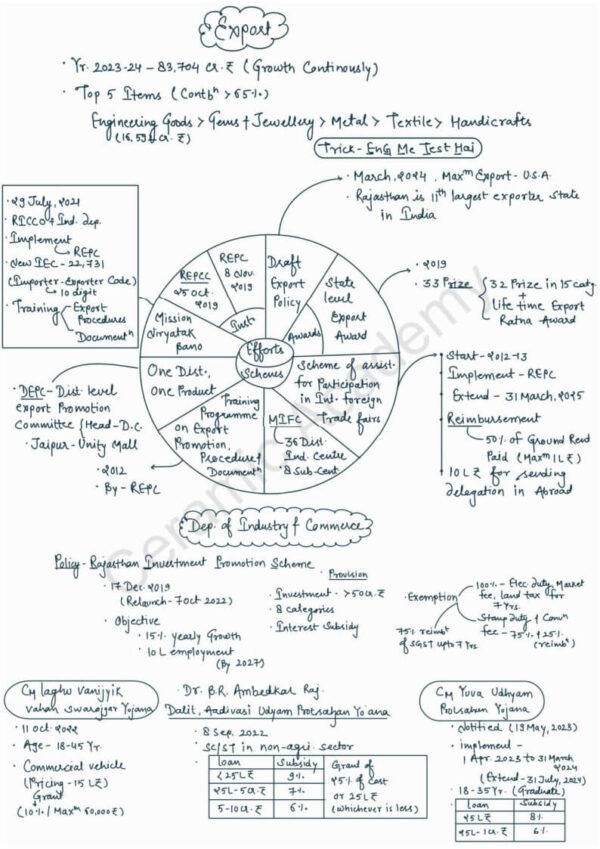 Export
· Yr. 2023-24 – 83,704 cr.₹ (Growth Continously)
· Top 5 Items (Contbn > 65%)
Engineering Goods > Gems & Jewellery > Metal > Textile > Handicrafts
(16,594 cr. ₹)
Trick - EnG Me Test Hai
· March, 2024. Maxm Export - U.S.A
· Rajasthan is 11th largest exporter state
in India
· 29 July, 2021
· RICCO & Ind. dep.
· Implement
→ REPC
· New IEC - 22,731
(Importer-Exporter Code)
→ 10 digit
· Training
Export
Procedures
Documentn
REPCC
25 oct.
2019
REPC
8 Nov.
2019
Draft
Export
Policy
State
level
Export
Award
Awards
Inst.
Mission
Niryatak
Bano
Efforts
Schemes
One Dist.,
One Product
Training
Programme
on Export
Promotion,
Procedure &
Documentn
MIFC
36 Dist.
Ind. Centre
8 Sub-Cent.
Scheme of assist.
for Participation
in Int. foreign
Trade fairs
· 2019
· 33 Prize
32 Prize in 15 catg.
+
Life time Export
Ratna Award
· Start - 2012-13
· Implement - REPC
· Extend - 31 March, 2025
· Reimbursement
50% of Ground Rend
Paid (Maxm 1L₹)
· 10L₹ for sending
delegation in Abroad
· DEPC - Dist. level
export Promotion
Committee {Head-D.C.
· Jaipur - Unity Mall
· 2012
· By - REPC
Ceramic Academy
Dep. of Industry & Commerce
Policy - Rajasthan Investment Promotion Scheme
· 17 Dec. 2019
(Relaunch - 7 Oct 2022)
· Objective
· 15% yearly Growth
· 10L employment
(By 2027)
Provision
· Investment - > 50 cr.₹
· 8 categories
· Interest Subsidy
· Exemption
100% - Elec. duty, Market
fee, land tax for
7 Yrs.
Stamp duty & Convn
fee - 75% & 25%
(reimbn)
75% reimbn
of SGST upto 7 Yrs.
CM laghu Vanijyik
vahan Swarojgar Yojana
· 11 Oct. 2022
· Age - 18-45 Yr.
· Commercial vehicle
(Pricing - 15L₹)
Grant
(10% / Maxm 60,000₹)
· Dr. B.R. Ambedkar Raj.
Dalit, Aadivasi Udyam Protsahan Yojana
· 8 Sep. 2022
· SC/ST in non-agri. sector
loan Subsidy
<25L₹ 9%
25L-5cr.₹ 7%
5-10cr.₹ 6%
Grant of
25% of cost
or 25L₹
(whichever is less)
CM Yuva Udhyam
Protsahan Yojana
· Notified (19 May, 2023)
· implement -
1 Apr. 2023 to 31 March
2024
(Extend - 31 July, 2024)
· 18-35 Yr. (Graduate)
loan Subsidy
25L₹ 8%
25L-1cr.₹ 6%